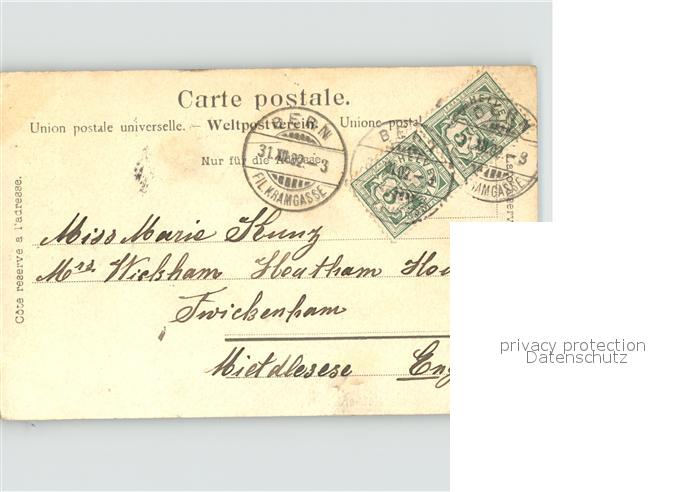 Carte postale.
Union postale universelle. — Weltpostverein. Unione postal
Nur für die Adresse.
BERN
31.XII.02.-3
FIL.KRAMGASSE
Côte réservé à l'adresse.
Miss Marie Kunz
Mrs. Wickham Heatham Hou
Twickenham
Mietdlesese Eng
privacy protection
Datenschutz